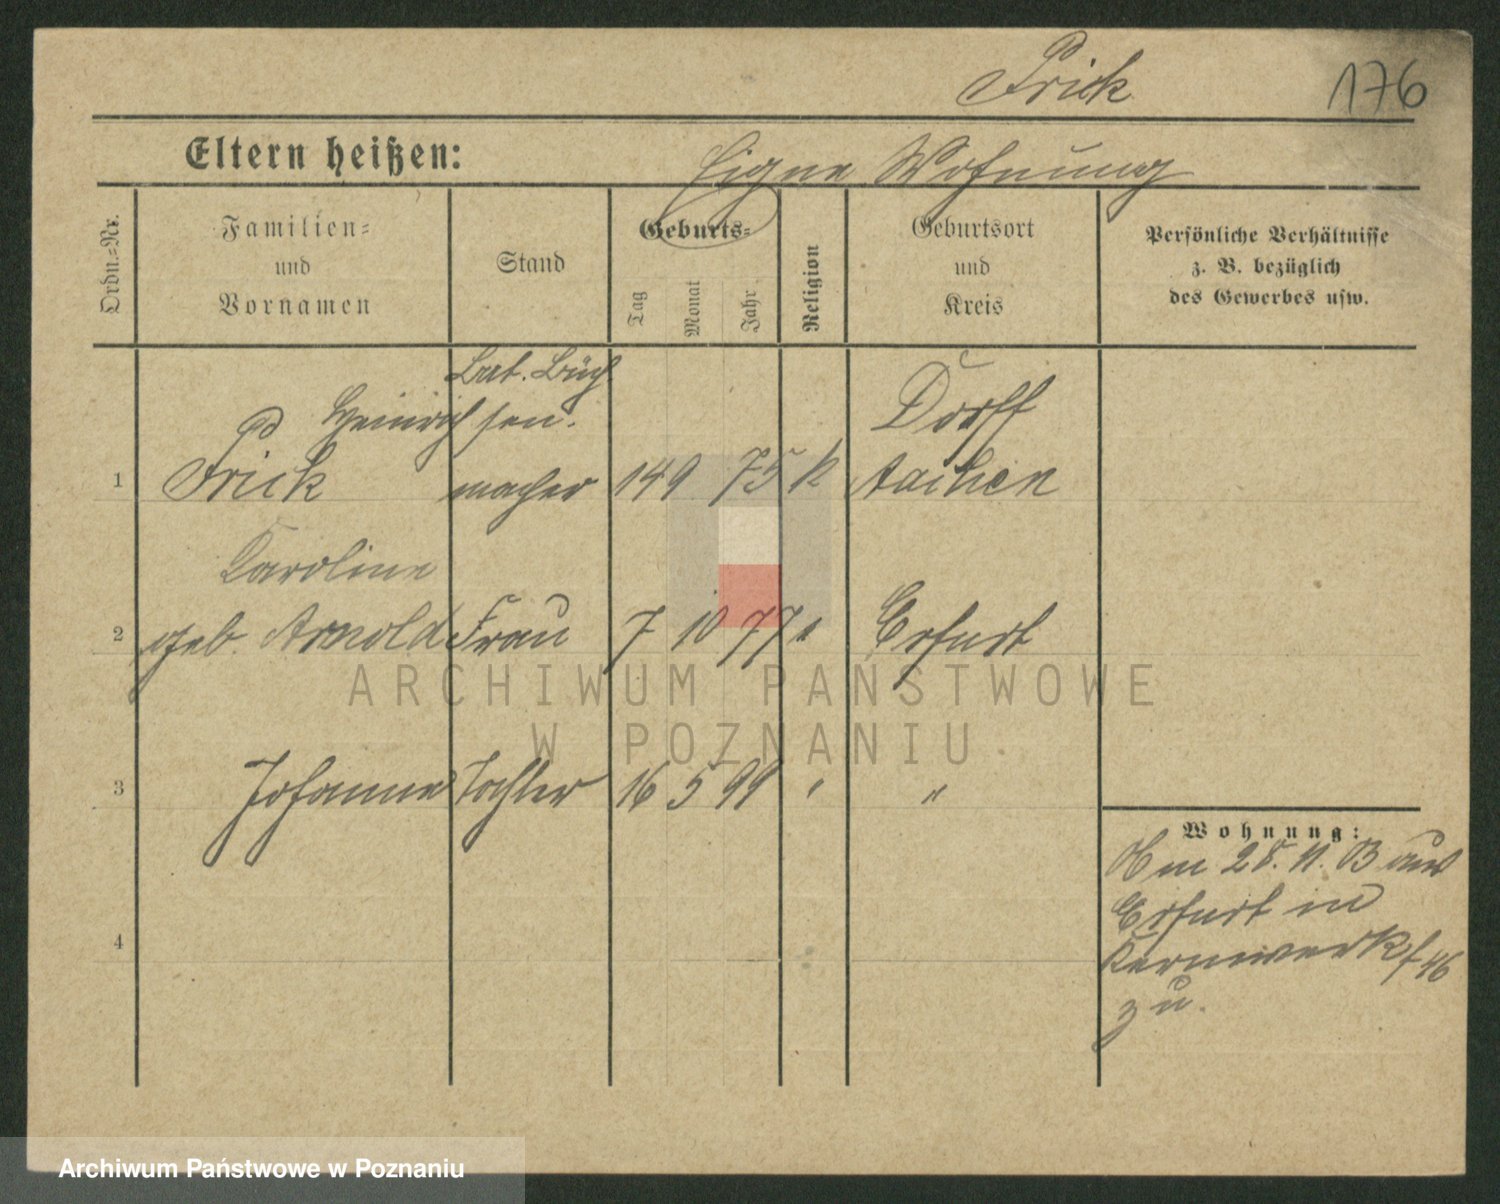 Frick
176
Eltern heißen:
Eigne Wohnung
Ordn.-Nr.
Familien-
und
Vornamen
Stand
Geburts-
Tag
Monat
Jahr
Religion
Geburtsort
und
Kreis
Persönliche Verhältnisse
z. B. bezüglich
des Gewerbes usw.
Bat. Büch
Heinrich sen.
Dorff
1 Frick macher 14 9 75 k Aachen
Karoline
2 geb. Arnold Frau 7 10 77 " Erfurt
3 Johanna Tochter 16 5 99 " "
Wohnung:
Am 28. 11. 03 aus
Erfurt in
Kernwerk 46
zu.
4
ARCHIWUM PAŃSTWOWE
W POZNANIU
Archiwum Państwowe w Poznaniu